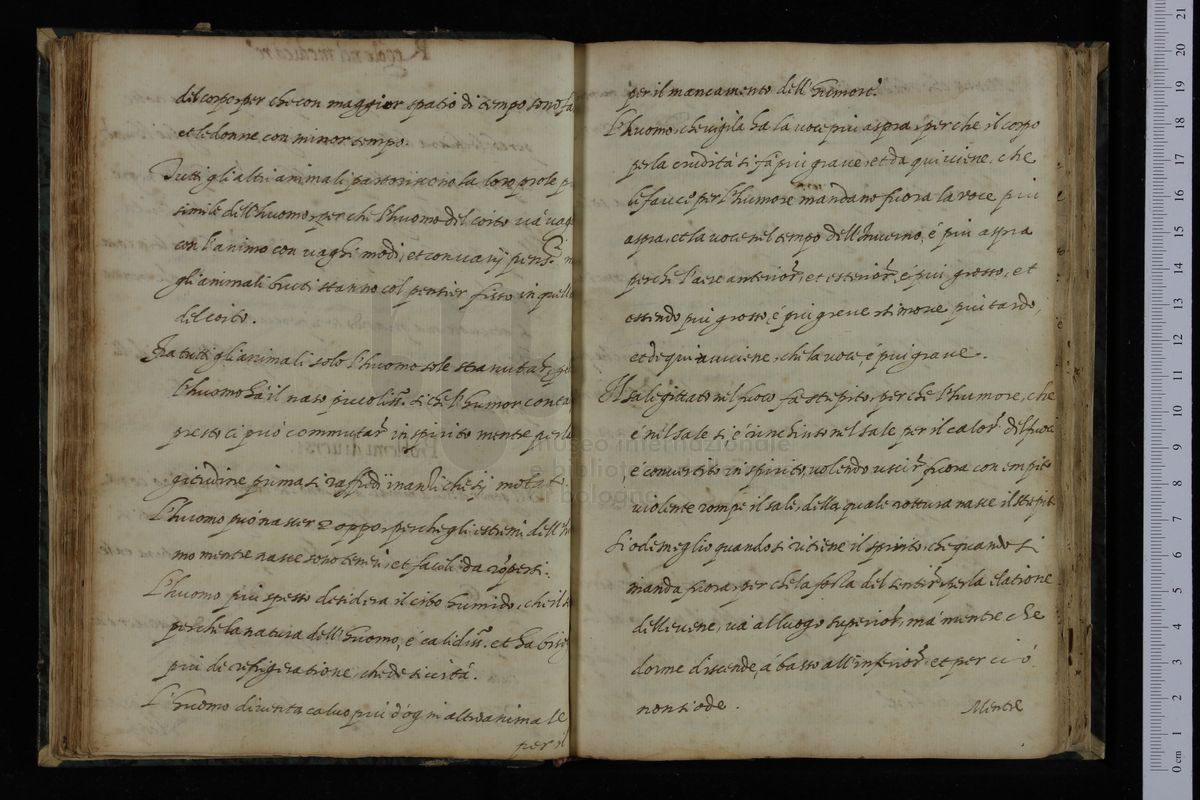 del corpo per che con maggior spatio di tempo sono fa
et le donne con minor tempo.
Tutti gli altri animali partoriscono la loro prole
simile dell'huomo, per che l'huomo del coito và vag
con l'animo con vaghi modi, et con varij pens.i n
gli animali bruti stanno col pensier fisso in quell
del coito.
Fra tutti gli animali solo l'huomo sole stranutar,
l'huomo hà il naso piccoliss. si che l'humor
presto ci può commutar in spirito mente per la
gitudine prima si raffredi inanzi che si
L'huomo può nascer oppo, perche gli estremi dell'h
mo mentre nasce sono teneri, et facili da
L'huomo più spesso desidera il cibo humido, che il s
perche la natura dell'huomo, è calidiss. et ha bisog
più di refrigeratione, che de siccità.
L'huomo diventa calvo più d'ogni altro animale
per il
per il mancamento dell'humore.
L'huomo, che vigila ha la voce più aspra, per che il corpo
per la crudità si fà più grave, et da qui viene, che
le fauce per l'humore mandano fuora la voce più
aspra, et la voce nel tempo dell'Inverno, è più aspra
perche l'aere anterior, et esterior, è più grosso, et
essendo più grosso, è più greve et si move più tardo,
et de qui aviviene, che la voce, è più grave.
Il sal gittato nel fuoco fa strepito, per che l'humore, che
è nel sale si, è rinchiuso nel sale per il calor del fuoco
, è convertito in spirito, volendo uscir fuora con empito
violente rompe il sale, della quale rottura nasce il strepit
Si ode meglio quando si ritiene il spirito, che quando si
manda fuora, per che la forza del sentir per la elatione
delle vene, và al luogo superior, mà mentre che
dorme discende, à basso all'inferior, et per ciò
non si ode.
Mentre
museo internazionale
e biblioteca della musica
di bologna
0 cm 1 2 3 4 5 6 7 8 9 10 11 12 13 14 15 16 17 18 19 20 21